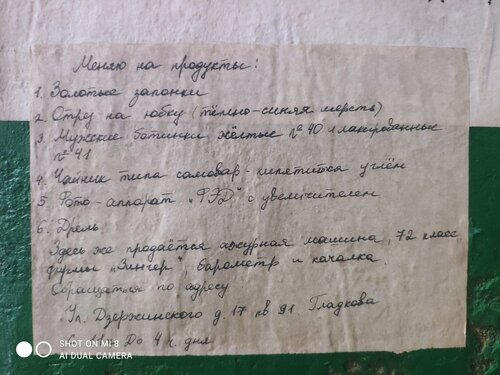 Меняю на продукты:
1. Золотые запонки
2. Отрез на юбку (тёмно-синяя шерсть)
3. Мужские ботинки жёлтые № 40 и лакированные
№ 41
4. Чайник типа самовар - кипятится углём
5. Фото-аппарат "ФЭД" с увеличителем
6. Дрель
Здесь же продаётся ажурная машина, 72 класс,
фирмы "Зингер", барометр и качалка.
Обращаться по адресу:
Ул. Дзержинского д. 17 кв 91 Гладкова
до 4 ч. дня
SHOT ON MI 8
AI DUAL CAMERA